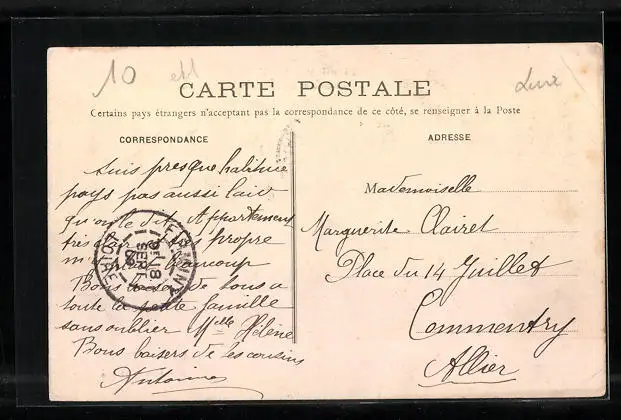 10
CARTE POSTALE
Certains pays étrangers n'acceptant pas la correspondance de ce côté, se renseigner à la Poste
CORRESPONDANCE
Suis presque habituée
pays pas aussi laid
qu'on le dit Appartement
très clair propre
beaucoup
Bons baisers de tous a
toute la petite famille
sans oublier Melle Hélène
Bons baisers de les cousins
Antoine
FIRMINY
LOIRE
ADRESSE
Mademoiselle
Marguerite Clairet
Place du 14 Juillet
Commentry
Allier